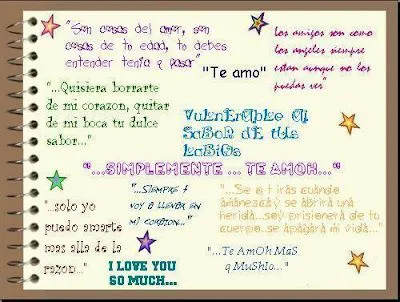 "Son cosas del amor, son
cosas de tu edad, tu debes
entender tenia q pasar"
los amigos son como
los angeles siempre
estan aunque no los
puedas ver"
"Te amo"
"...Quisiera borrarte
de mi corazon, quitar
de mi boca tu dulce
sabor..."
VulnErAblE Al
SaBoR dE tUs
LaBiOs
"...SIMPLEMENTE ... TE AMOH..."
"...SIEMPRE T
VOY A LLEVAR EN
MI CORAZON..."
"...Se q t irás cuando
amanezca y se abrirá una
herida...soy prisionera de tu
cuerpo..se apagará mi vida..."
"...solo yo
puedo amarte
mas alla de la
razon..."
"...Te AmOh MaS
q MuShIo..."
I LOVE YOU
SO MUCH...